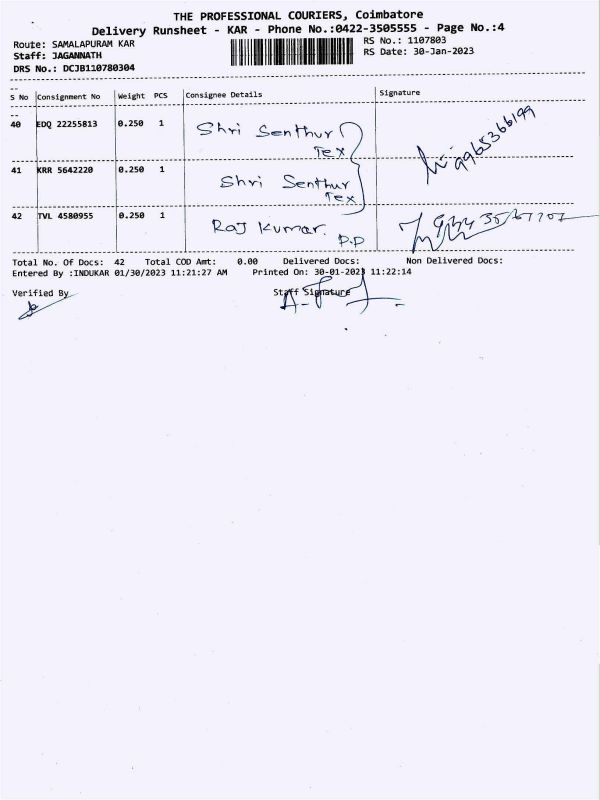 THE PROFESSIONAL COURIERS, Coimbatore
Delivery Runsheet - KAR - Phone No.:0422-3505555 - Page No.:4
Route: SAMALAPURAM KAR
RS No.: 1107803
Staff: JAGANNATH
RS Date: 30-Jan-2023
DRS No.: DCJB110780304
S No Consignment No Weight PCS Consignee Details Signature
40 EDQ 22255813 0.250 1 Shri Senthur
Tex
9965366199
41 KRR 5642220 0.250 1 Shri Senthur
Tex
42 TVL 4580955 0.250 1 Raj Kumar.
P.P
Total No. Of Docs: 42 Total COD Amt: 0.00 Delivered Docs: Non Delivered Docs:
Entered By :INDUKAR 01/30/2023 11:21:27 AM Printed On: 30-01-2023 11:22:14
Verified By Staff Signature